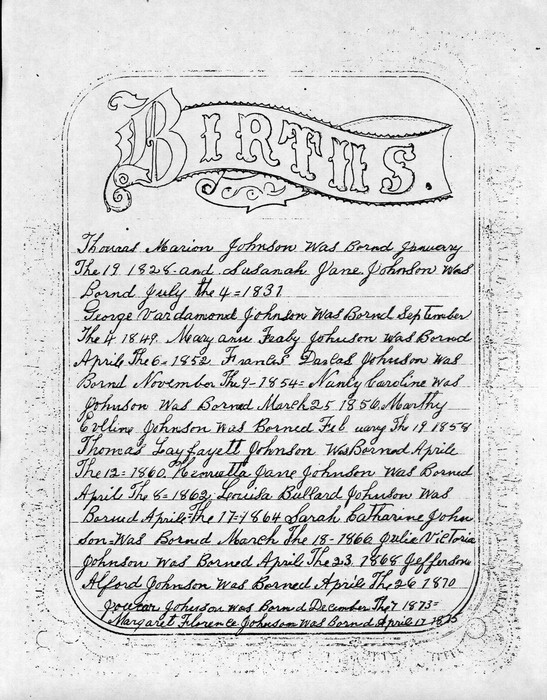 BIRTHS.
Thomas Marion Johnson Was Bornd January
The 19 1828 and Susanah Jane Johnson Was
Bornd July the 4 = 1831
George Vardamond Johnson Was Bornd September
The 4 1849. Mary ann Johnson Was Bornd
Aprile The 6 - 1852 Francis Johnson Was
Bornd November The 9 - 1854 = Caroline Was
Johnson Was Borned March 25 1856 Marthy
Evline Johnson Was Borned Feb uary The 19 1858
Thomas Layfayett Johnson Was Bornod Aprile
The 12 = 1860. Henrietta Jane Johnson Was Borned
Aprile The 8 = 1862; Louisa Bullard Johnson Was
Borned Aprile = The 17 = 1864 Sarah Catharine John
son = Was Borned March The 18 - 1866 Julia Victoria
Johnson Was Borned April The 23 1868 Jefferson
Alford Johnson Was Borned Aprile The 26 1870
Johnson Was Borned December The 7 1873 =
Margaret Florence Johnson Was Bornd April 17 1875